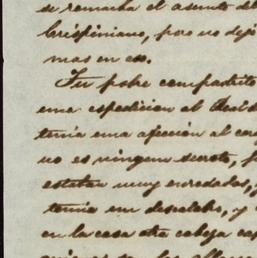 se remacha el asunto del
Crispiniano, pero no dejó
mas en es.
Tu pobre compadrito
una espedicion al
tenia una afeccion al
no es ningun secreto,
estaban muy enredados,
tenia un descalabro, y
en la casa otra cabeza